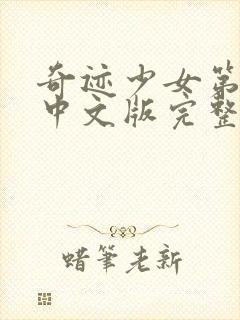 奇迹少女第
中文版完整
蜡笔老新